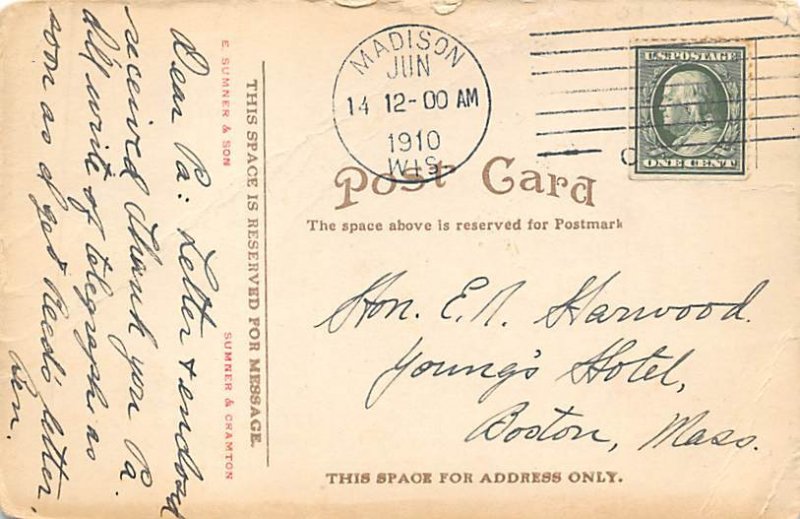 MADISON
JUN
14 12-00 AM
1910
WIS.
U.S. POSTAGE
ONE CENT
Post Card
The space above is reserved for Postmark
Hon. E. N. Harwood.
Young's Hotel,
Boston, Mass.
THIS SPACE FOR ADDRESS ONLY.
THIS SPACE IS RESERVED FOR MESSAGE.
E. SUMNER & SON
SUMNER & CRAMTON
Dear Pa: Letter & enclosed
received Thank you Pa.
write or telegraph as
soon as I get letter,
Ben.